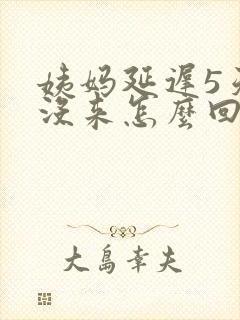 姨妈延遲5天
沒来怎麼回
大島幸夫